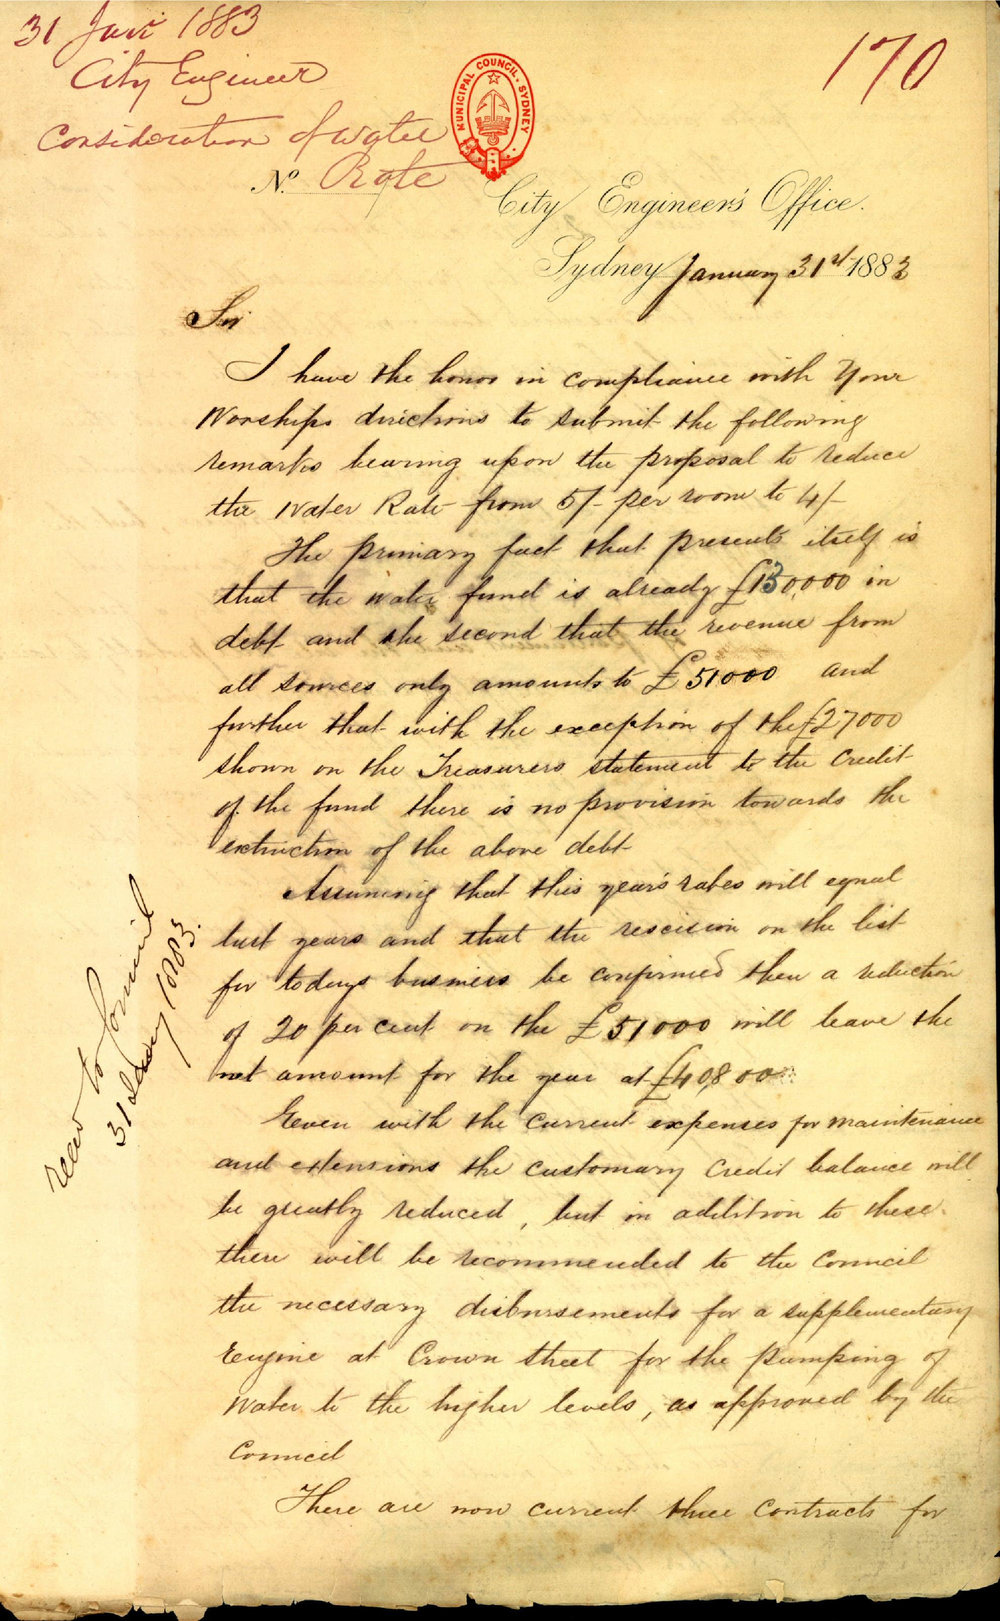 31 Jany 1883
City Engineer
Consideration of Water
Rate
170
MUNICIPAL COUNCIL. SYDNEY
No.
City Engineer's Office.
Sydney January 31st 1883
Sir
I have the honor in compliance with Your
Worships directions to submit the following
remarks bearing upon the proposal to reduce
the Water Rate from 5/- per room to 4/-
The primary fact that presents itself is
that the water fund is already £130,000 in
debt and the second that the revenue from
all sources only amounts to £51000 and
further that with the exception of the £27000
shown on the Treasurers statement to the Credit
of the fund there is no provision towards the
extinction of the above debt
Assuming that this year's rates will equal
last years and that the rescision on the list
for todays business be confirmed then a reduction
of 20 per cent on the £51000 will leave the
net amount for the year at £40,800
Even with the current expenses for maintenance
and extensions the customary Credit balance will
be greatly reduced, but in addition to these
there will be recommended to the Council
the necessary disbursements for a supplementary
Engine at Crown Street for the pumping of
Water to the higher levels, as approved by the
Council
There are now current three Contracts for
Recd to Council
31 Jany 1883.